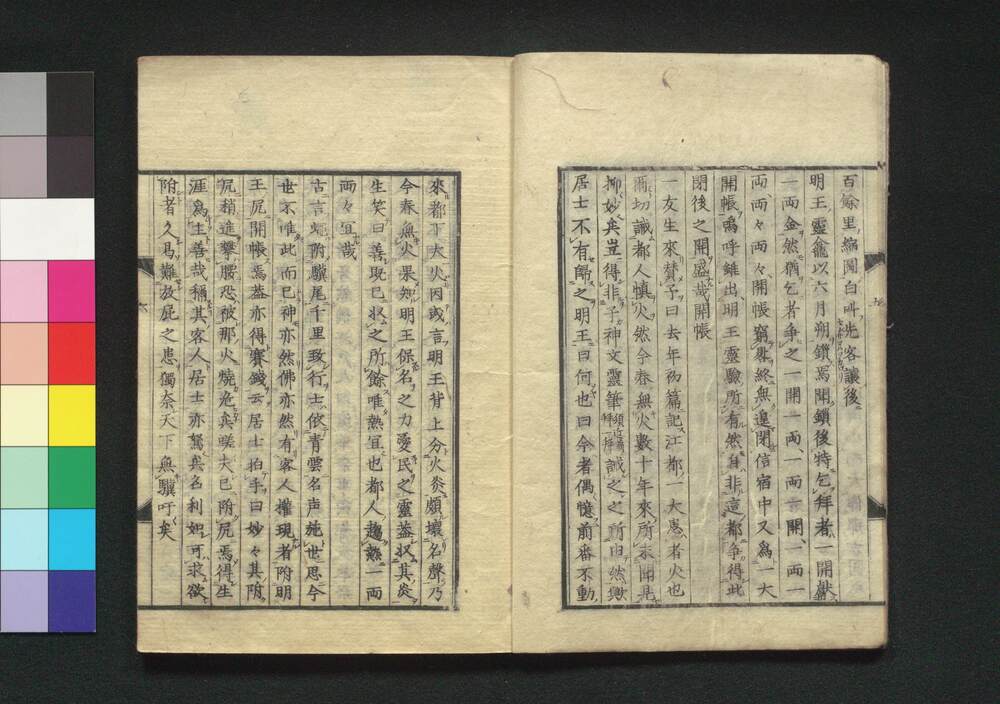 百餘里縮圓白叫先客讓後
明王靈龕以六月朔鑽焉開鎖後特乞拜者一開獻
一兩金然猶乞者爭之一開一兩一兩一開一兩一
兩兩々兩々開帳窮晷終無遑閉信宿中又為一大
開帳嗚呼雖出明王靈驗所有然自非這都爭得此
閉後之開盛哉開帳
一友生來贊予曰去年初篇記江都一大患者火也
爾切識都人慎火然今春無火數十年來所未聞是
抑妙矣豈得非子神文靈筆誠之之所由然與
居士不有歸之明王曰何也曰今者偶憶前番不動
來都下大火因或言明王背上分火炎頗壞名聲乃
今春無火果知明王保名之力愛民之靈蓋収其炎
生笑曰善既已収之所餘唯熱宜也都人趨熱一兩
兩々宜哉
古言蠅附驥尾千里致行士依青雲名声施世思今
世不唯此而已神亦然佛亦然有客人權現者附明
王尻開帳焉蓋亦得賽錢云居士拍手曰妙々其附
尻稍進攀腰恐被那火燒危矣嗟夫已附尻焉得生
涯為主善哉稱其客人居士亦駑矣名利如可求欲
附者久焉難放屁之患獨奈天下無驥吁矣
六